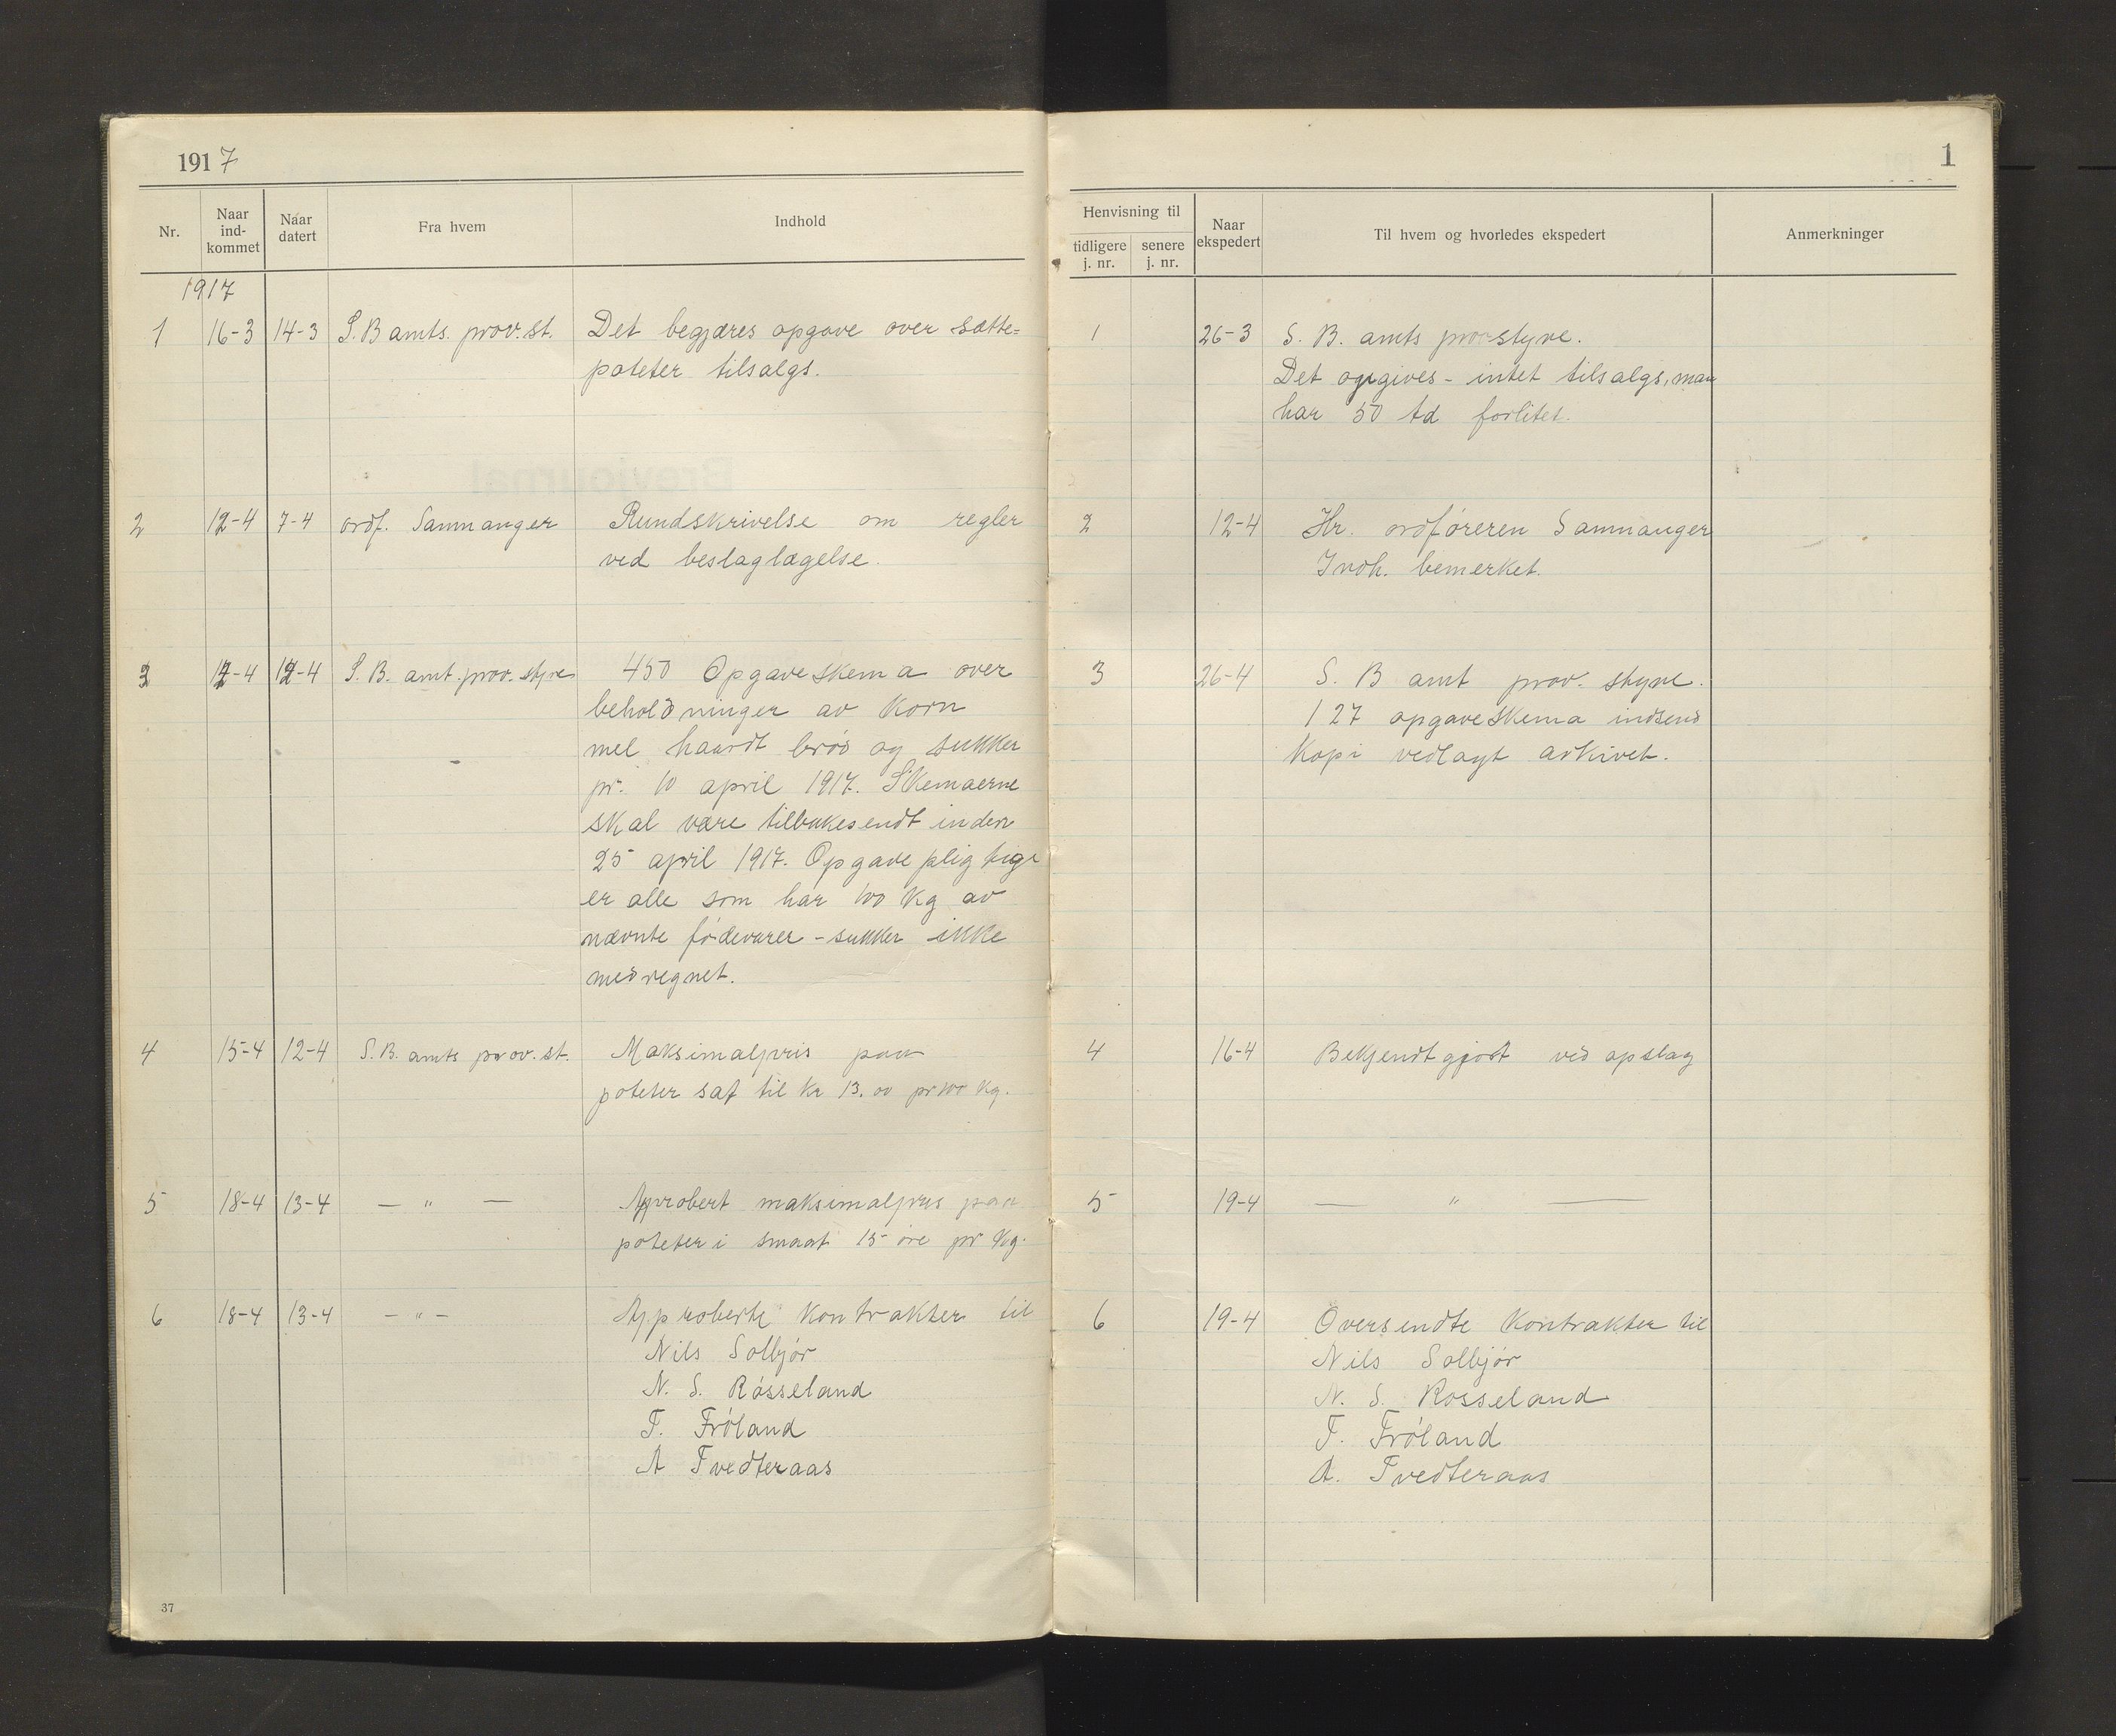 1917
Nr.
Naar ind-kommet
Naar datert
Fra hvem
Indhold
1917
1 16-3 14-3 S.B amts. prov. st. Det begjæres opgave over sætte=
poteter tilsalgs.
2 12-4 7-4 ordf. Samnanger Rundskrivelse om regler
ved beslaglægelse.
3 12-4 12-4 S.B. amt. prov. styre 450 Opgaveskema over
beholdninger av korn
mel haardt brød og sukker
pr. 10 april 1917. Skemaerne
skal være tilbakesendt inden
25 april 1917. Opgavepligtige
er alle som har 100 kg av
nævnte fødevarer - sukker ikke
medregnet.
4 15-4 12-4 S.B. amts prov. st. Maksimalpris paa
poteter sat til kr 13.00 pr 100 kg.
5 18-4 13-4 — " — Approbert maksimalpris paa
poteter i smaat 15 øre pr kg.
6 18-4 13-4 - " - Approberte kontrakter til
Nils Solbjør
N. S. Røsseland
T. Frøland
A Tvedteraas
37
1
Henvisning til
tidligere j. nr.
senere j. nr.
Naar ekspedert
Til hvem og hvorledes ekspedert
Anmerkninger
1 26-3 S. B. amts prov styre.
Det opgives - intet tilsalgs, man
har 50 td forlitet.
2 12-4 Hr. ordføreren Samnanger
Indh. bemerket.
3 26-4 S. B amt prov. styre.
127 opgaveskema indsend
kopi vedlagt arkivet.
4 16-4 Bekjendtgjort ved opslag
5 19-4 — " —
6 19-4 Oversendte kontrakter til
Nils Solbjør
N. S. Rosseland
T. Frøland
A. Tvedteraas